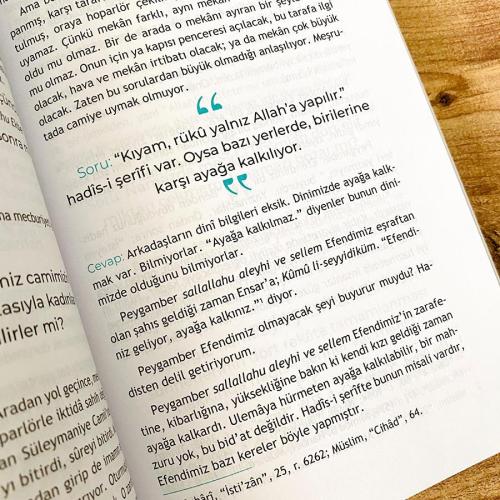 Ama b
panmış, karşı tara
tulmuş, oraya hoparlör çekilm
uyamaz. Çünkü mekân farklı, aynı mekân
oldu mu olmaz. Bir de arada o mekânı ayıran bir şey
mu olmaz. Onun için ya kapısı penceresi açılacak, bu tarafa ilgi
olacak, hava ve mekân irtibatı olacak; ya da mekân çok büyük
olacak. Zaten bu sorulardan büyük olmadığı anlaşılıyor. Meşru-
tada camiye uymak olmuyor.
Soru: “Kıyam, rükû yalnız Allah'a yapılır.”
hadîs-i şerîfi var. Oysa bazı yerlerde, birilerine
karşı ayağa kalkılıyor.
Cevap: Arkadaşların dinî bilgileri eksik. Dinimizde ayağa kalk-
mak var. Bilmiyorlar. “Ayağa kalkılmaz.” diyenler bunun dini-
mizde olduğunu bilmiyorlar.
Peygamber sallallahu aleyhi ve sellem Efendimiz eşraftan
olan şahıs geldiği zaman Ensar'a; Kûmû li-seyyidiküm. “Efendi-
niz geliyor, ayağa kalkınız.”¹ diyor.
Peygamber Efendimiz olmayacak şeyi buyurur muydu? Ha-
disten delil getiriyorum.
Peygamber sallallahu aleyhi ve sellem Efendimiz'in zarafe-
tine, kibarlığına, yüksekliğine bakın ki kendi kızı geldiği zaman
ayağa kalkardı. Ulemâya hürmeten ayağa kalkılabilir, bir mah-
zuru yok, bu bid'at değildir. Hadîs-i şerîfte bunun misali vardır,
Efendimiz bazı kereler böyle yapmıştır.
hârî, “İsti'zân”, 25, r. 6262; Müslim, “Cihâd”, 64.
na mecburiye
niz camimiz
kasıyla kadınla
ilirler mi?
Aradan yol geçince, m
parlörle iktidâ sahih
an Süleymaniye Cami
yı bitirdi, sûreyi bitirdi
adan girip de imamı